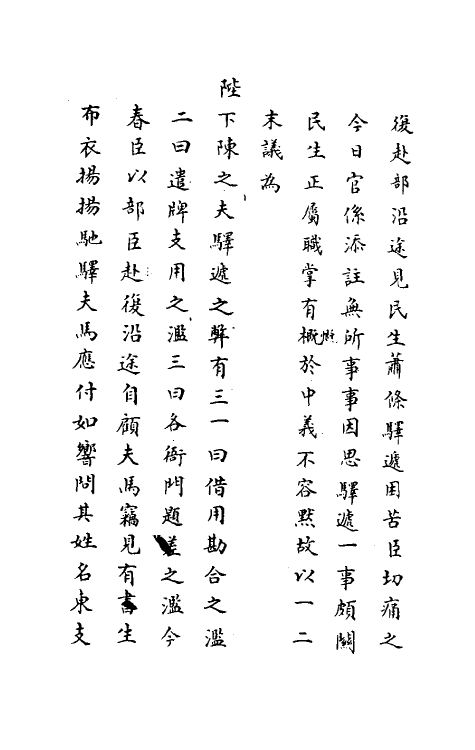 復赴部沿途見民生蕭條驛遞困苦臣切痛之
今日官係添註無所事事因思驛遞一事頗關
民生正屬職掌有概於中義不容默故以一二
末議為
陛下陳之夫驛遞之弊有三一曰借用勘合之濫
二曰遣牌支用之濫三曰各衙門題差之濫今
春臣以部臣赴復沿途自顧夫馬竊見有書生
布衣揚揚馳驛夫馬應付如響問其姓名東支